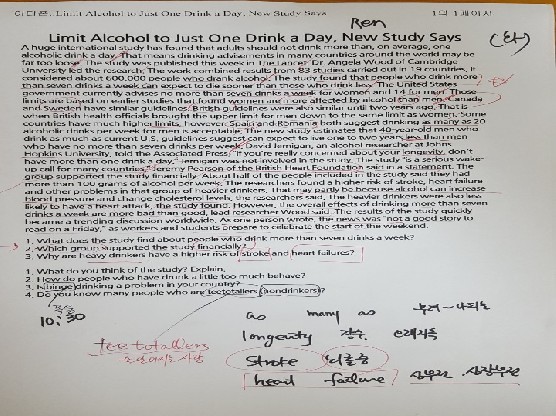 Limit Alcohol to Just One Drink a Day, New Study Says
Ren
Limit Alcohol to Just One Drink a Day, New Study Says
A huge international study has found that adults should not drink more than, on average, one
alcoholic drink a day. That means drinking advisements in many countries around the world may be
far too loose. The study was published this week in The Lancet. Dr. Angela Wood of Cambridge
University led the research. The work combined results from 83 studies carried out in 19 countries. It
considered about 600,000 people who drank alcohol. The study found that people who drink more
than seven drinks a week can expect to die sooner than those who drink less. The United States
government currently advises no more than seven drinks a week for women and 14 for men. Those
limits are based on earlier studies that found women are more affected by alcohol than men. Canada
and Sweden have similar guidelines. British guidelines were also similar until two years ago. That is
when British health officials brought the upper limit for men down to the same limit as women. Some
countries have much higher limits, however. Spain and Romania suggest drinking as many as 20
alcoholic drinks per week for men is acceptable. The new study estimates that 40-year-old men who
drink as much as current U.S. guidelines suggest can expect to live one to two years less than men
who have no more than seven drinks per week. David Jernigan, an alcohol researcher at Johns
Hopkins University, told the Associated Press, "if you're really concerned about your longevity, don't
have more than one drink a day." Jernigan was not involved in the study. The study "is a serious wake-
up call for many countries," Jeremy Pearson of the British Heart Foundation said in a statement. The
group supported the study financially. About half of the people included in the study said they had
more than 100 grams of alcohol per week. The researchers found a higher risk of stroke, heart failure
and other problems in that group of heavier drinkers. That may partly be because alcohol can increase
blood pressure and change cholesterol levels, the researchers said. The heavier drinkers were also less
likely to have a heart attack, the study found. However, the overall effects of drinking more than seven
drinks a week are more bad than good, lead researcher Wood said. The results of the study quickly
became a trending discussion worldwide. As one person wrote, the news was "not a good story to
read on a Friday," as workers and students prepare to celebrate the start of the weekend.
1. What does the study find about people who drink more than seven drinks a week?
2. Which group supported the study financially?
3. Why are heavy drinkers have a higher risk of stroke and heart failures?
1. What do you think of the study? Explain.
2. How do people who have drunk a little too much behave?
3. Is binge drinking a problem in your country?
4. Do you know many people who are teetotallers (nondrinkers)?
10:30
as many as
tee totallers
longevity 장수
stroke 뇌졸중
head failure